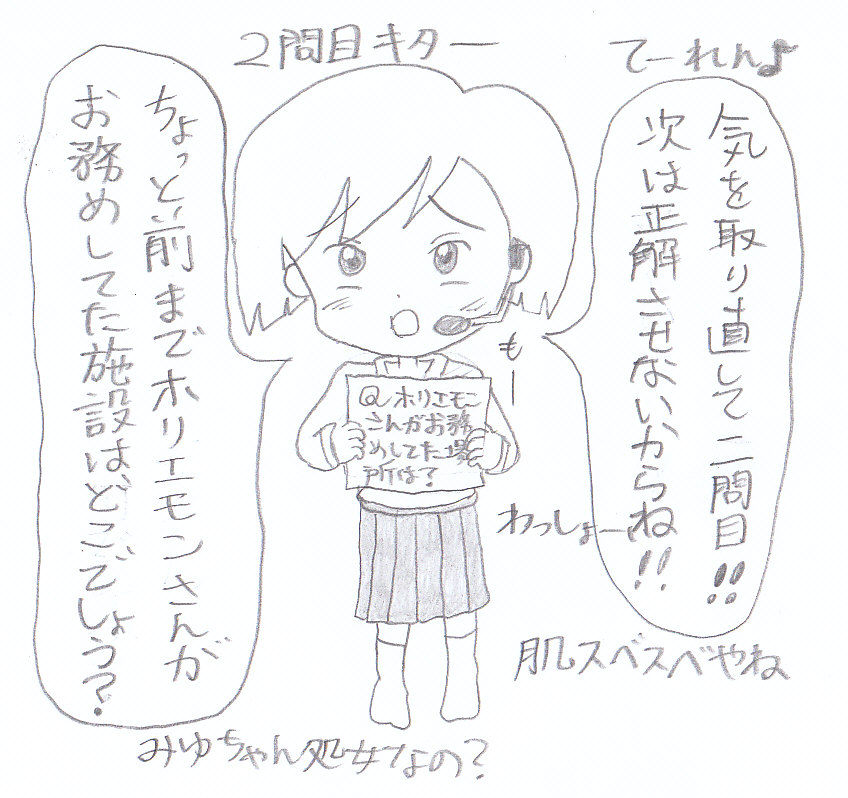 2問目キター
てーれん♪
気を取り直して二問目!!
次は正解させないからね!!
ちょっと前までホリエモンさんが
お務めしてた施設はどこでしょう?
もー
Q.ホリエモン
さんがお務
めしてた場
所は?
わっしょーい
肌スベスベやね
みゆちゃん処女なの?